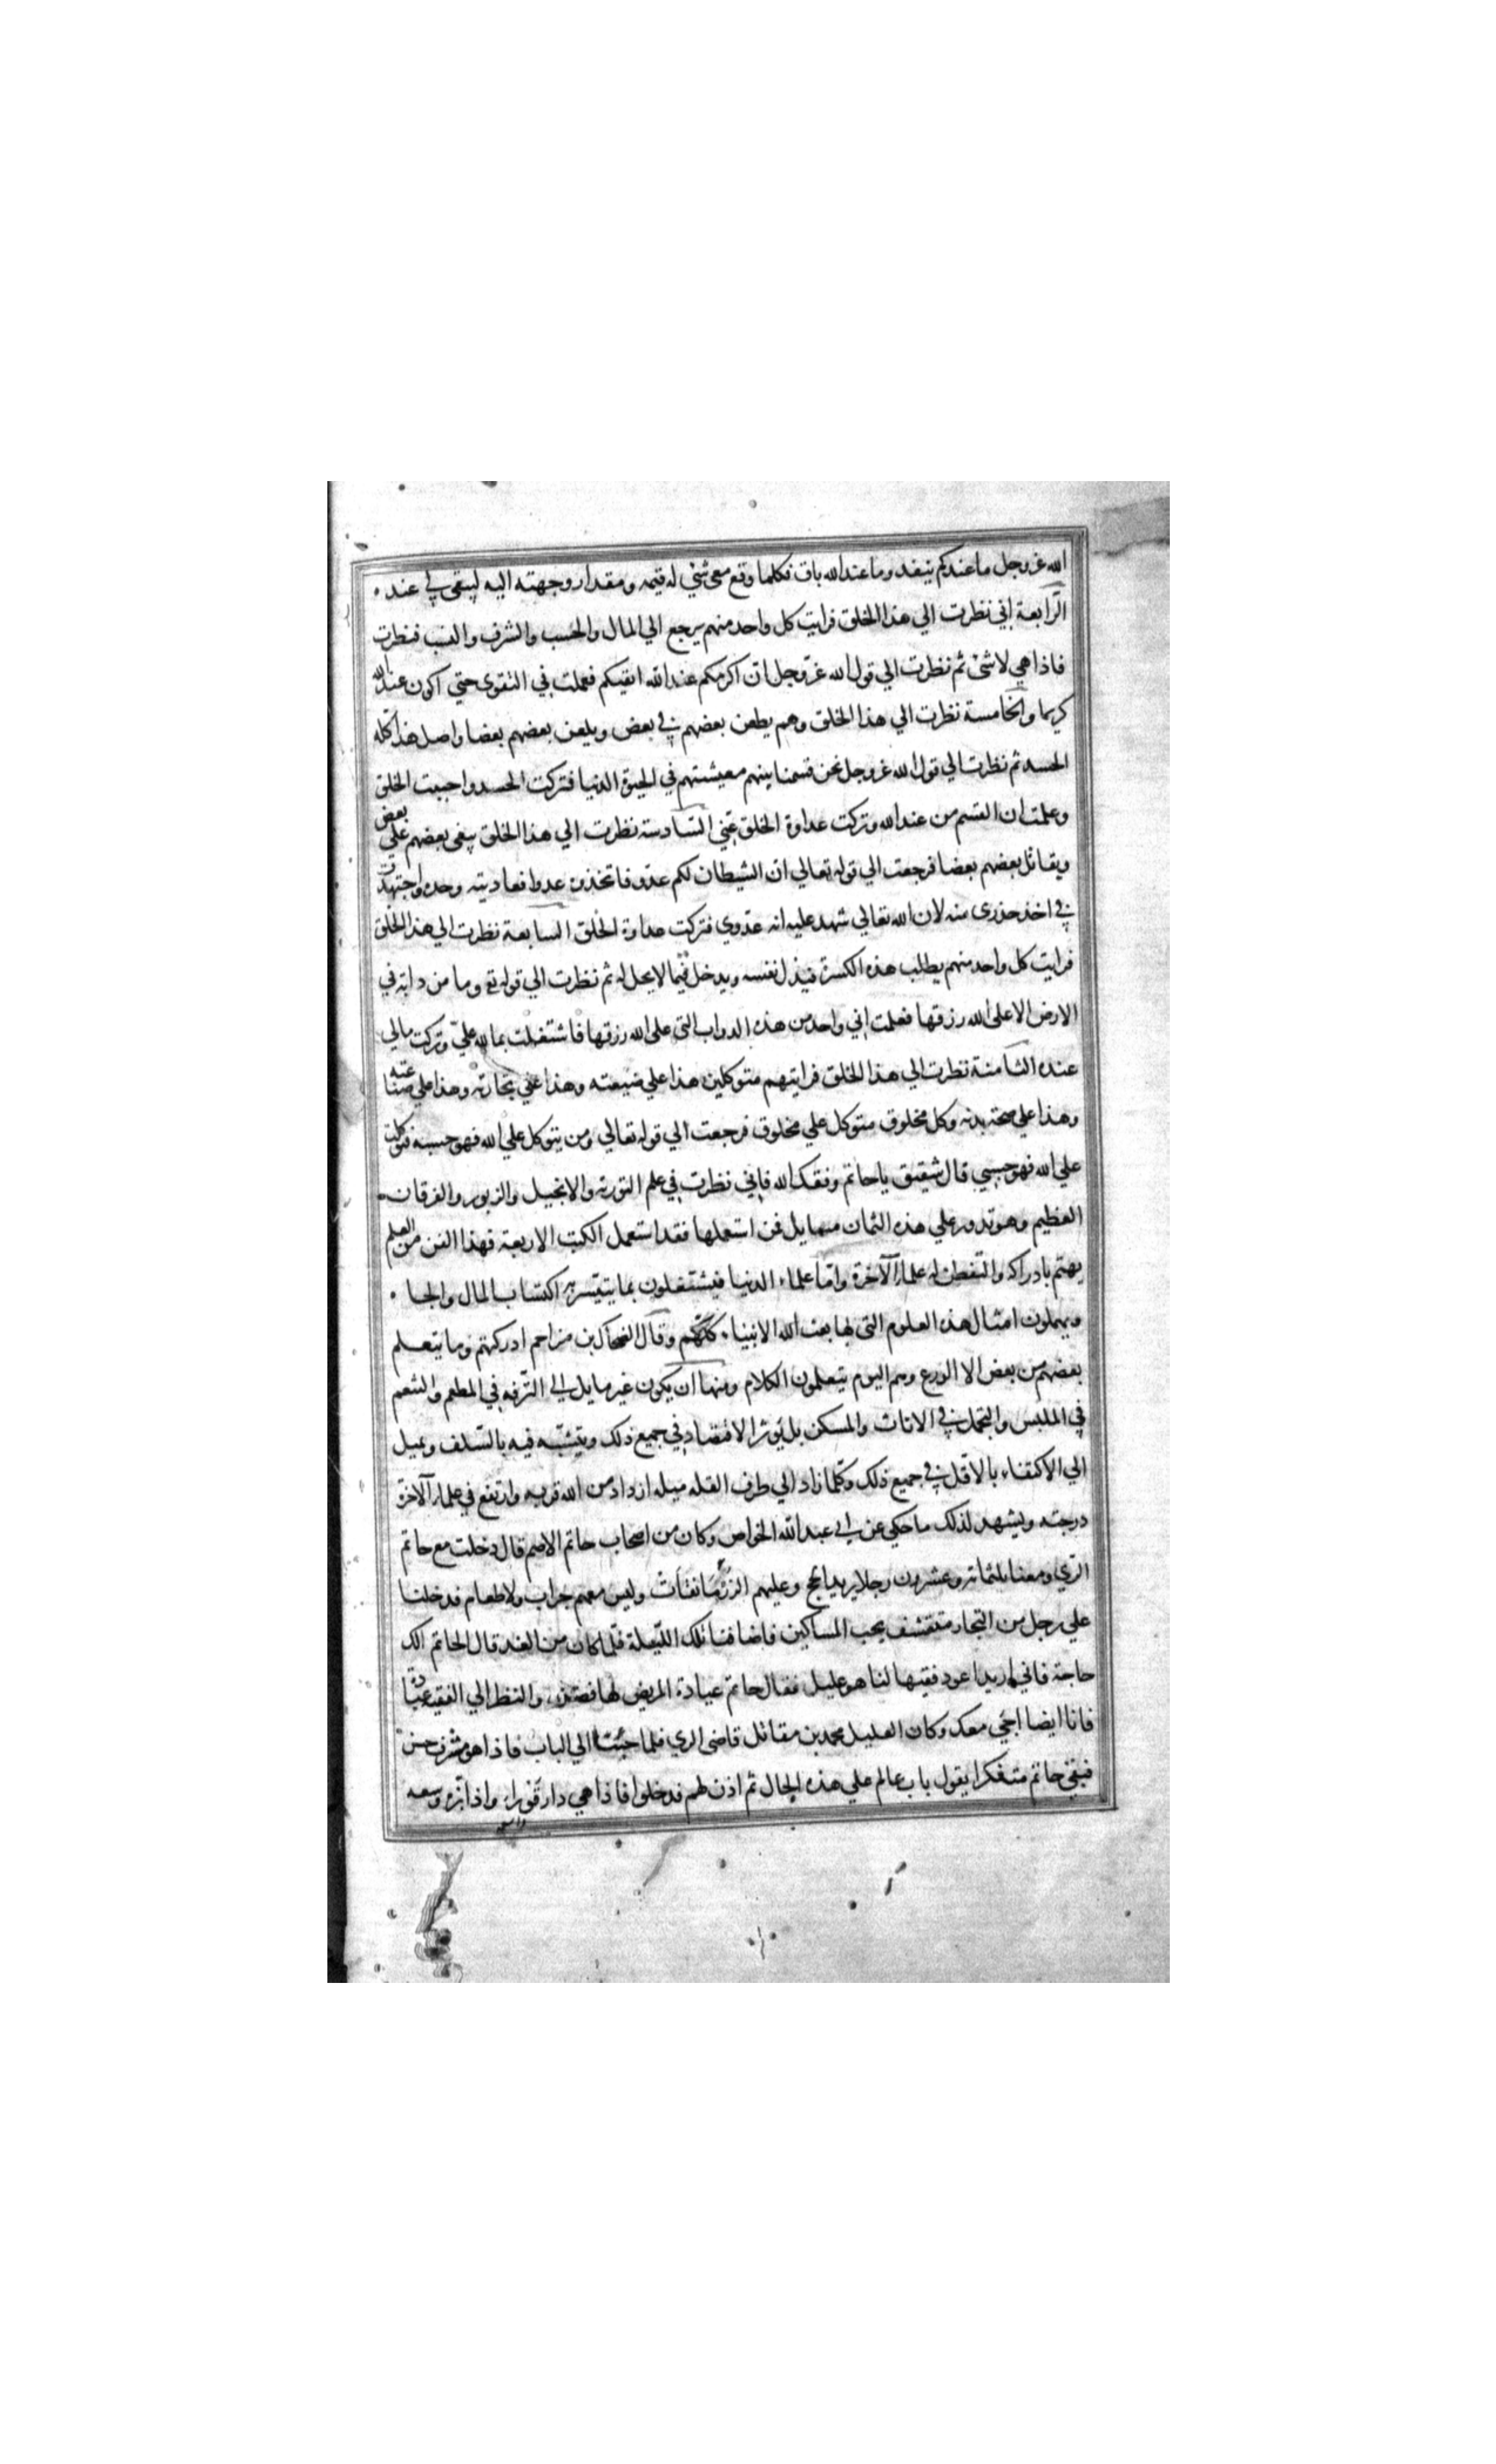 الله عز وجل ما عندكم ينفد وما عند الله باق فكلما وقع معي شئ له قيمه ومقدار وجهته اليه ليبقى لي عنده
الرّابعة اني نظرت الي هذا الخلق فرايت كل واحد منهم يرجع الي المال والحسب والشرف والنسب فنظرت
فاذا هي لا شئ ثم نظرت الي قول الله عزّ وجل انّ اكرمكم عند الله اتقيكم فعملت في التقوى حتي اكون عند الله
كريما والخامسة نظرت الي هذا الخلق وهم يطعن بعضهم في بعض ويلعن بعضهم بعضا واصل هذا كله
الحسد ثم نظرت الي قول الله عز وجل نحن قسمنا بينهم معيشتهم في الحيوة الدنيا فتركت الحسد واجبت الخلق
وعلمت ان القسم من عند الله وتركت عداوة الخلق عني السّادسة نظرت الي هذا الخلق يبغي بعضهم علي بعض
ويقاتل بعضهم بعضا فرجعت الي قوله تعالي ان الشيطان لكم عدو فاتخذوه عدوا فعاديته وحده واجتهدت
في اخذ حذرى منه لان الله تعالي شهد عليه انه عدوي فتركت عداوة الخلق السابعة نظرت الي هذا الخلق
فرايت كل واحد منهم يطلب هذه الكسرة فيذل نفسه ويدخل فيما لا يحل له ثم نظرت الي قوله تع وما من دابة في
الارض الا على الله رزقها فعلمت اني واحد من هذه الدواب التي على الله رزقها فاشتغلت بما لله عليّ وتركت مالي
عنده الثامنة نظرت الي هذا الخلق فرايتهم متوكلين هذا علي ضيعته وهذا علي تجارته وهذا علي صناعته
وهذا علي صحة بدنه وكل مخلوق متوكل علي مخلوق فرجعت الي قوله تعالي ومن يتوكل علي الله فهو حسبه فتوكلت
علي الله فهو حسبي قال شقيق يا حاتم وفقك الله فاني نظرت في علم التورية والانجيل والزبور والفرقان
العظيم وهو تدور علي هذه الثمان مسايل فمن استعملها فقد استعمل الكتب الاربعة فهذا الفن من العلم
يهتم بادراكه والتفطن له علماء الآخرة وامّا علماء الدنيا فيشتغلون بما يتيسر به اكتساب المال والجاه
ويهملون امثال هذه العلوم التي بها بعث الله الانبياء كلّهم وقال الضحاك بن مزاحم ادركتهم وما يتعلم
بعضهم من بعض الا الورع وهم اليوم يتعلمون الكلام ومنها ان يكون غير مايل الي الترفه في المطعم والتنعم
في الملبس والتجمل في الاثاث والمسكن بل يؤثر الاقتصاد في جميع ذلك ويتشبّه فيه بالسّلف ويميل
الي الاكتفاء بالاقل في جميع ذلك وكلما زاد الي طرف القله ميله ازداد من الله قربه وارتفع في علماء الآخرة
درجته ويشهد لذلك ما حكي عن ابي عبد الله الخواص وكان من اصحاب حاتم الاصم قال دخلت مع حاتم
الري ومعنا ثلثماية وعشرون رجلا يريد الحج وعليهم الزرمانقات وليس معهم جراب ولا طعام فدخلنا
علي رجل من التجار متقشف يحب المساكين فاضافنا تلك الليلة فلما كان من الغد قال لحاتم الك
حاجة فاني اريد اعود فقيها لنا هو عليل فقال حاتم عيادة المريض لها فضل والنظر الي الفقيه عبادة
فانا ايضا اجئي معك وكان العليل محمد بن مقاتل قاضى الري فلما جئنا الي الباب فاذا هو مشرف حسن
فبقي حاتم متفكرا يقول باب عالم علي هذه الحال ثم اذن لهم فدخلوا فاذا هي دار قوراء واذا بزة وسعه